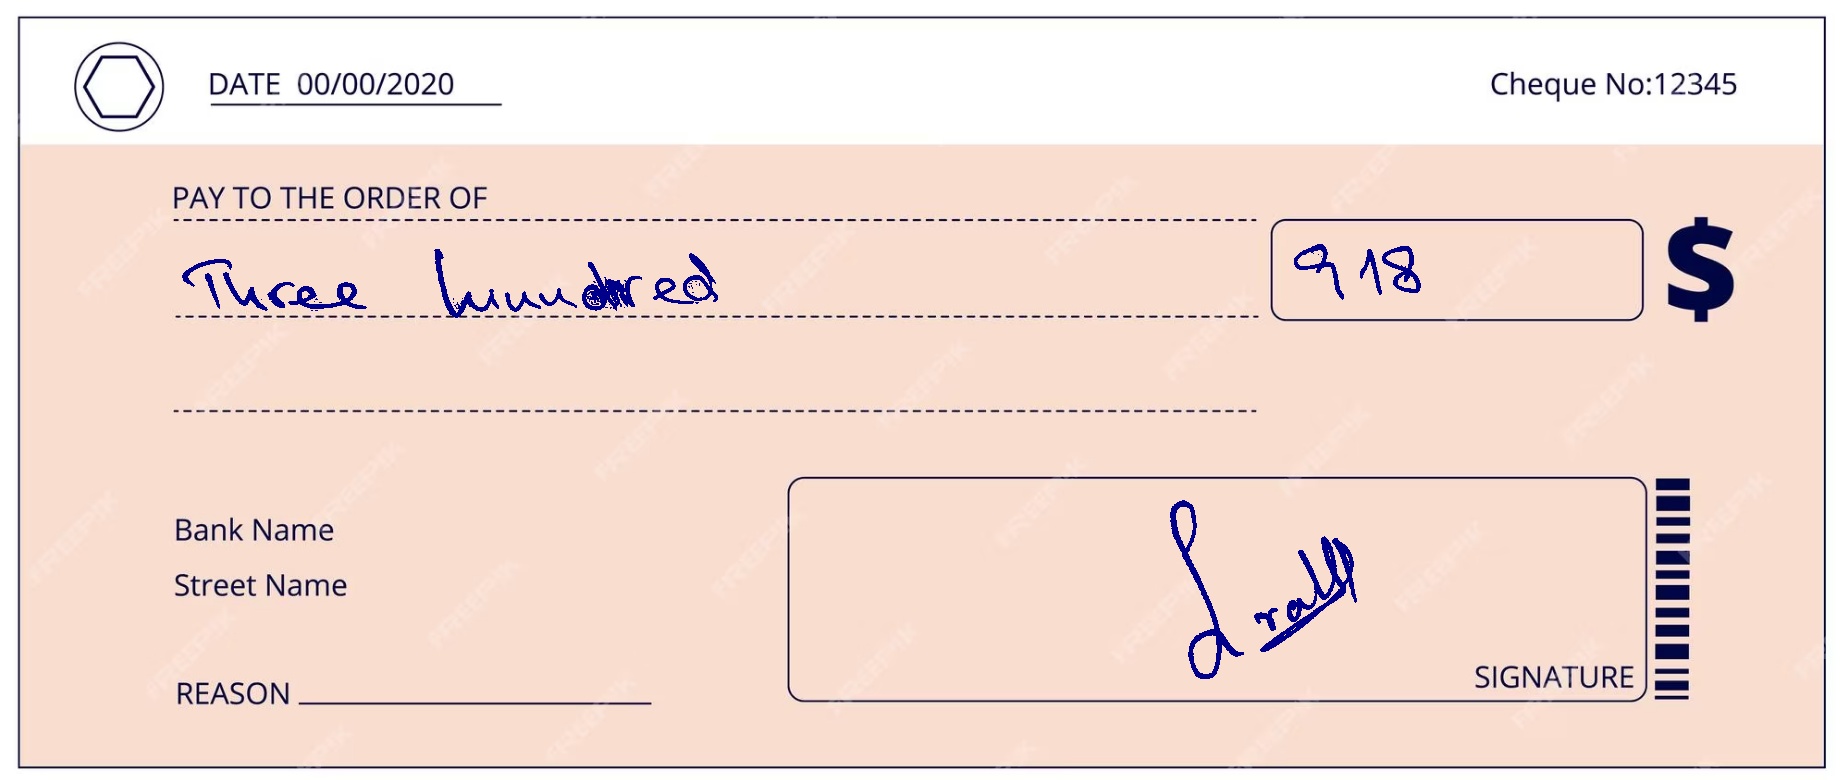 DATE 00/00/2020
Cheque No:12345
PAY TO THE ORDER OF
Three hundred
918
$
Bank Name
Street Name
REASON
SIGNATURE